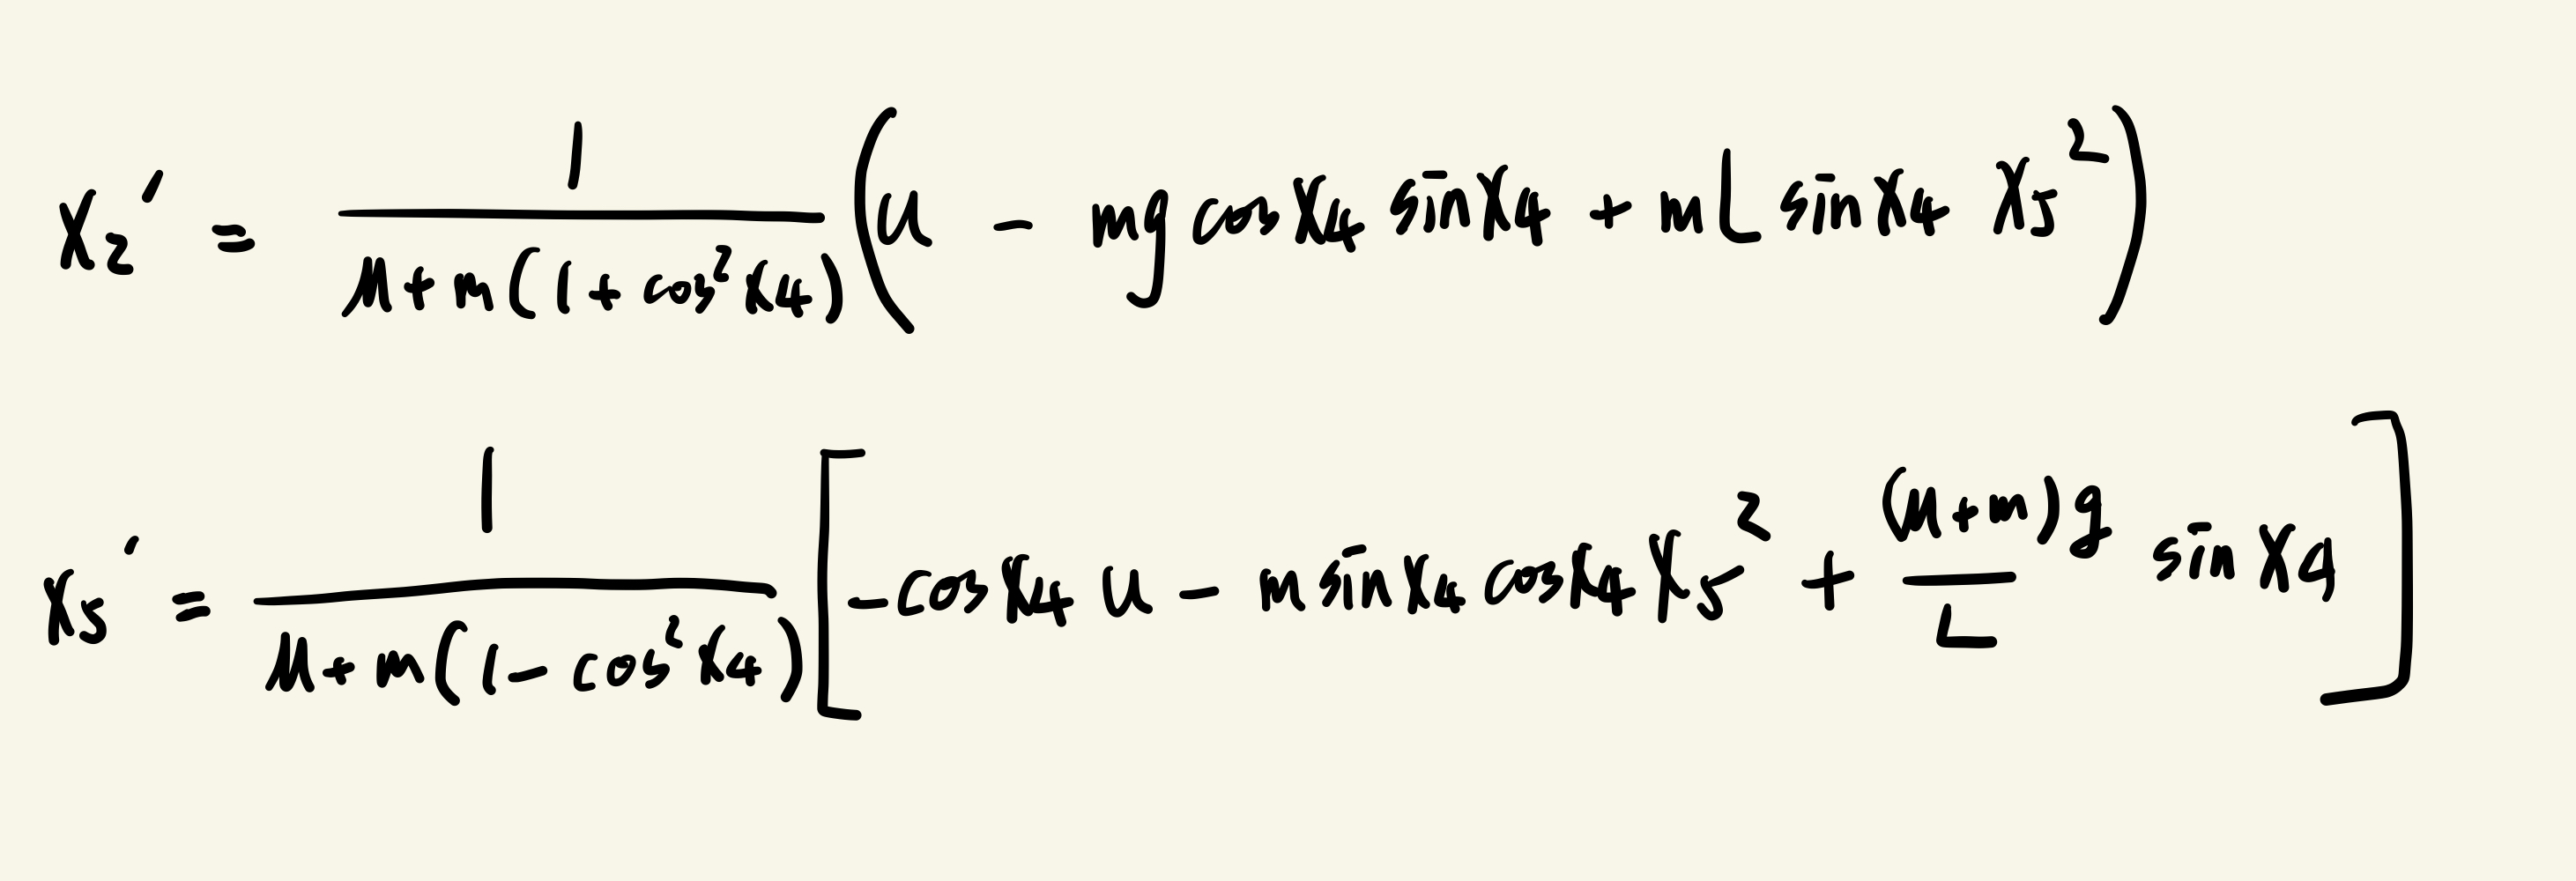 x₂' = 1/(M+m(1+cos²x₄)) (u - mg cosx₄ sinx₄ + mL sinx₄ x₅²)
x₅' = 1/(M+m(1-cos²x₄)) [-cosx₄ u - m sinx₄ cosx₄ x₅² + (M+m)g/L sinx₄]